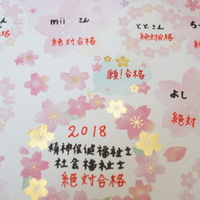 mii さん
絶対合格
とと さん
絶対合格
ち
願!合格
よし
絶対
2018
精神保健福祉士
社会福祉士
絶対合格